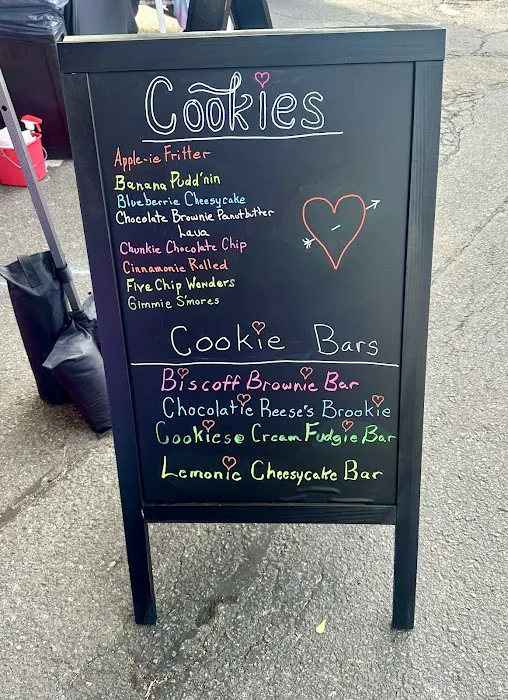 Cookies
Apple-ie Fritter
Banana Pudd'nin
Blueberrie Cheesycake
Chocolate Brownie Peanutbutter
Lava
Chunkie Chocolate Chip
Cinnamonie Rolled
Five Chip Wonders
Gimmie S'mores
Cookie Bars
Biscoff Brownie Bar
Chocolatie Reese's Brookie
Cookies e Cream Fudgie Bar
Lemonie Cheesycake Bar